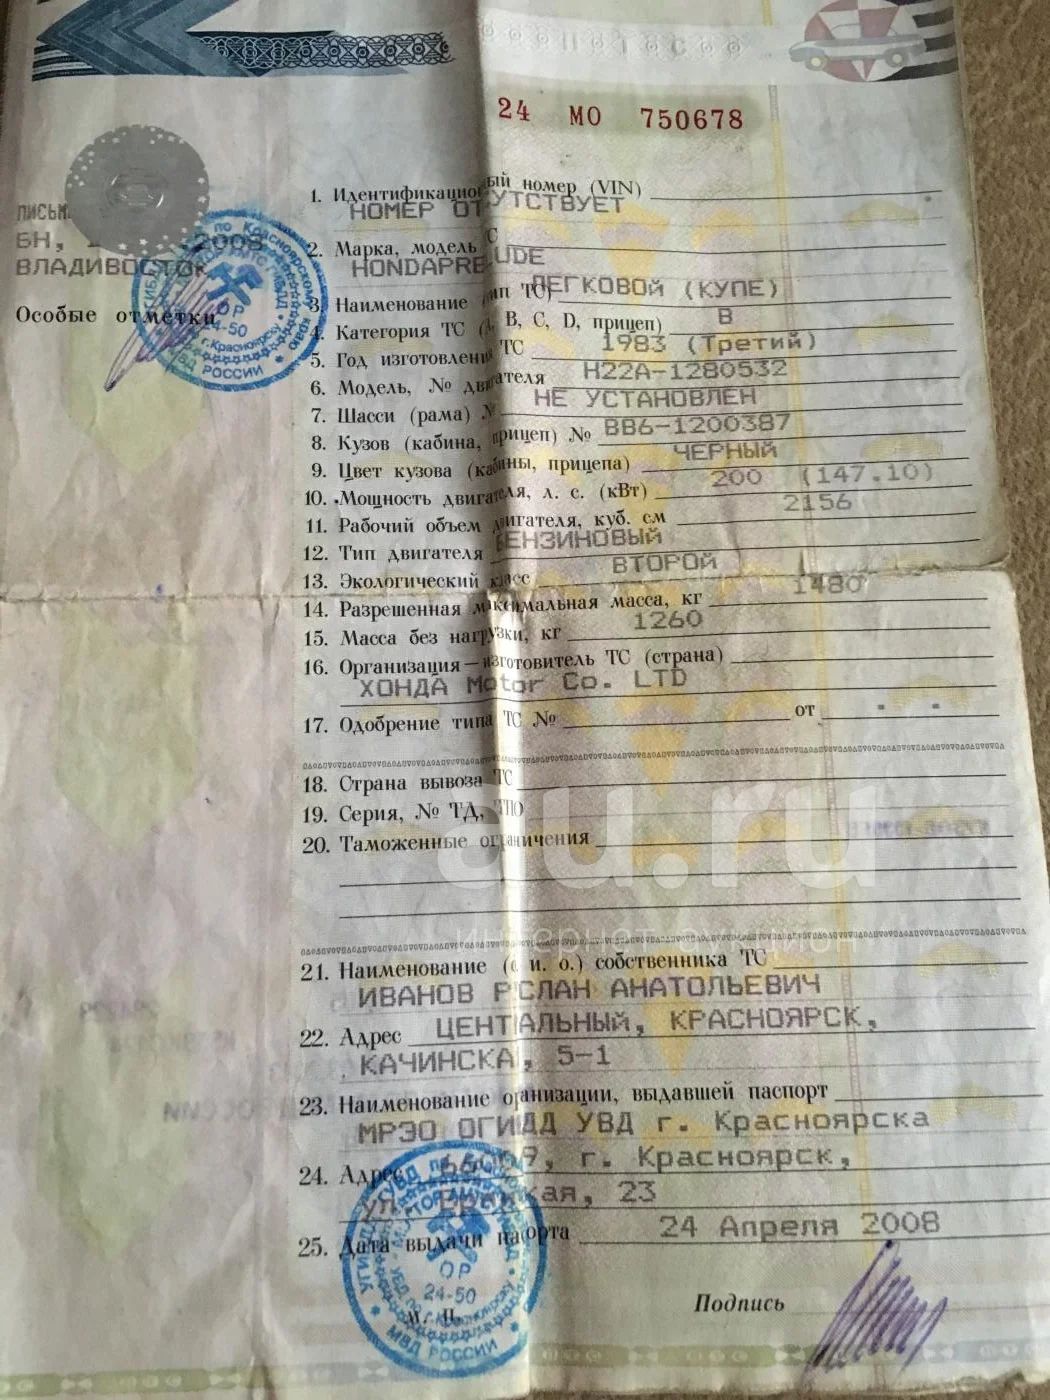 24 МО 750678
1. Идентификационный номер (VIN)
НОМЕР ОТСУТСТВУЕТ
2. Марка, модель ТС
HONDAPRELUDE
3. Наименование (тип ТС) ЛЕГКОВОЙ (КУПЕ)
4. Категория ТС (А, B, C, D, прицеп) B
5. Год изготовления ТС 1983 (Третий)
6. Модель, № двигателя H22A-1280532
7. Шасси (рама) № НЕ УСТАНОВЛЕН
8. Кузов (кабина, прицеп) № BB6-1200387
9. Цвет кузова (кабины, прицепа) ЧЕРНЫЙ
10. Мощность двигателя, л. с. (кВт) 200 (147.10)
11. Рабочий объем двигателя, куб. см 2156
12. Тип двигателя БЕНЗИНОВЫЙ
13. Экологический класс ВТОРОЙ
14. Разрешенная максимальная масса, кг 1480
15. Масса без нагрузки, кг 1260
16. Организация–изготовитель ТС (страна)
ХОНДА Motor Co. LTD
17. Одобрение типа ТС № от
18. Страна вывоза ТС
19. Серия, № ТД, ТПО
20. Таможенные ограничения
21. Наименование (ф. и. о.) собственника ТС
ИВАНОВ РСЛАН АНАТОЛЬЕВИЧ
22. Адрес ЦЕНТАЛЬНЫЙ, КРАСНОЯРСК,
КАЧИНСКА, 5-1
23. Наименование организации, выдавшей паспорт
МРЭО ОГИДД УВД г. Красноярска
24. Адрес г. Красноярск,
ул. 23
25. Дата выдачи паспорта 24 Апреля 2008
Подпись
М. П.
ОР
24-50
МВД РОССИИ
БН, 2008
ВЛАДИВОСТОК
Особые отметки
ОР
24-50
г.Красноярску
МВД РОССИИ
au.ru
интернет-аукцион